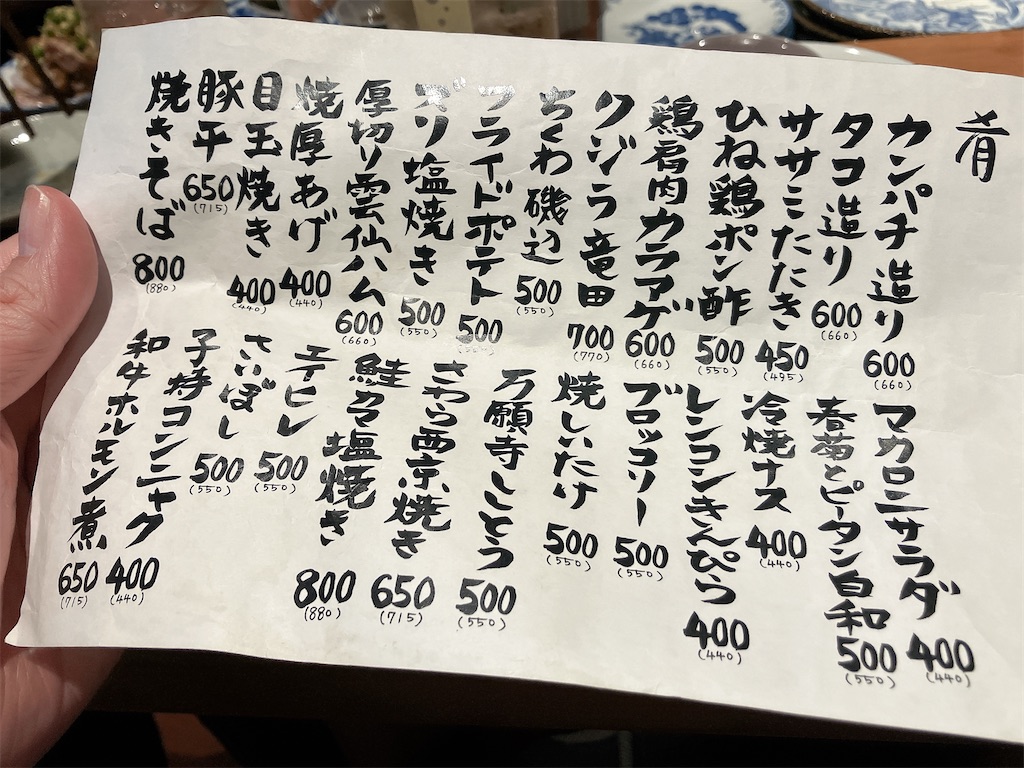 肴
カンパチ造り 600 (660)
タコ造り 600 (660)
ササミたたき 450 (495)
ひね鶏ポン酢 500 (550)
鶏肩肉カラアゲ 600 (660)
クジラ竜田 700 (770)
ちくわ磯辺 500 (550)
フライドポテト 500
ズリ塩焼き 500 (550)
厚切り雲仙ハム 600 (660)
焼厚あげ 400 (440)
目玉焼き 400 (440)
豚平 650 (715)
焼きそば 800 (880)
マカロニサラダ 400 (440)
春菊とピータン白和 500 (550)
冷焼ナス 400 (440)
レンコンきんぴら 400 (440)
ブロッコリー 500 (550)
焼しいたけ 500 (550)
万願寺ししとう 500 (550)
さわら西京焼き 650 (715)
鮭カマ塩焼き 800 (880)
エイヒレ 500 (550)
さいぼし 500 (550)
子持コンニャク 400 (440)
和牛ホルモン煮 650 (715)